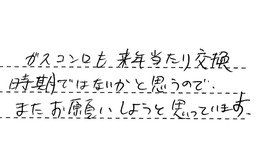 ガスコンロも 来年当たり交換
時期ではないかと思うので、
またお願いしようと思っています。